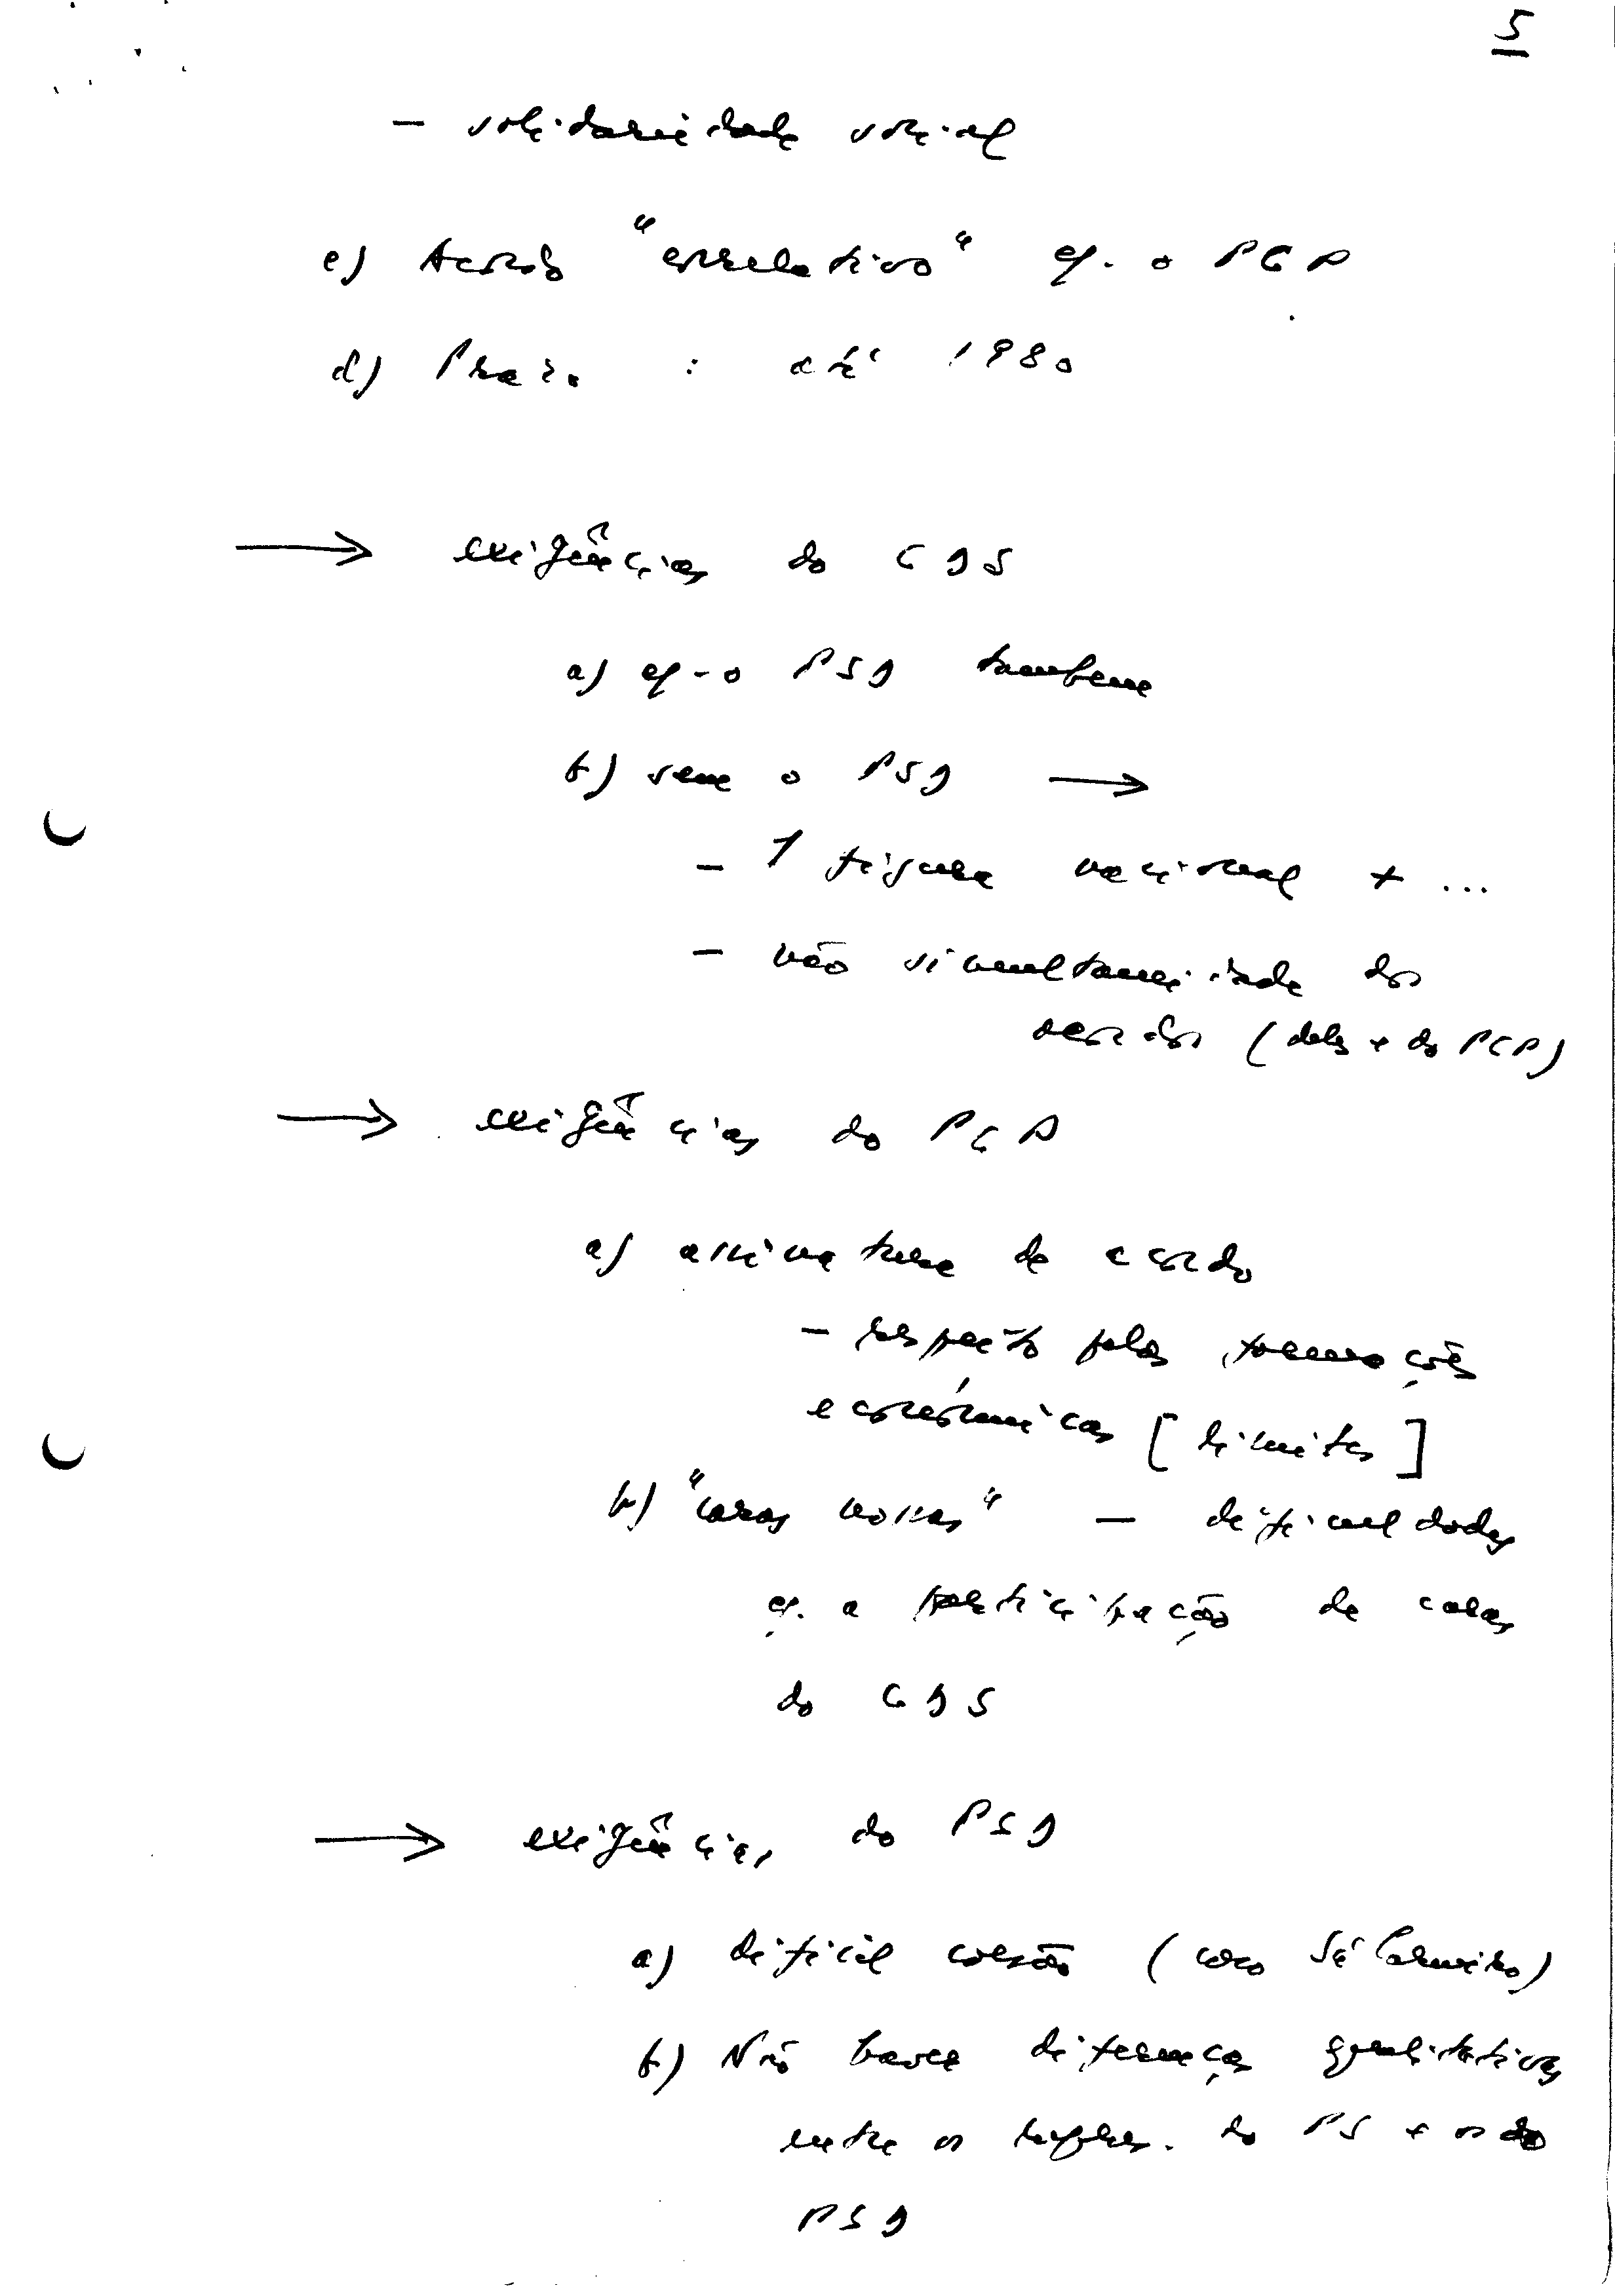 5
- solidariedade social
c) Acordo "correlativo" c/. o PCP
d) Prazo : até 1980
→ exigências do CDS
a) c/. o PSD também
b) sem o PSD →
- 1 figura nacional + ...
- não simultaneidade dos
acordos (deles e do PCP)
→ exigências do PCP
a) assinatura de acordo
- respeito pelas formações
económicas [limites]
b) "caras novas" - dificuldades
c/. a participação de caras
do CDS
→ exigências do PSD
a) difícil coesão (caso Sá Carneiro)
b) Não haver diferenças qualitativas
entre os repres. do PS e os do
PSD